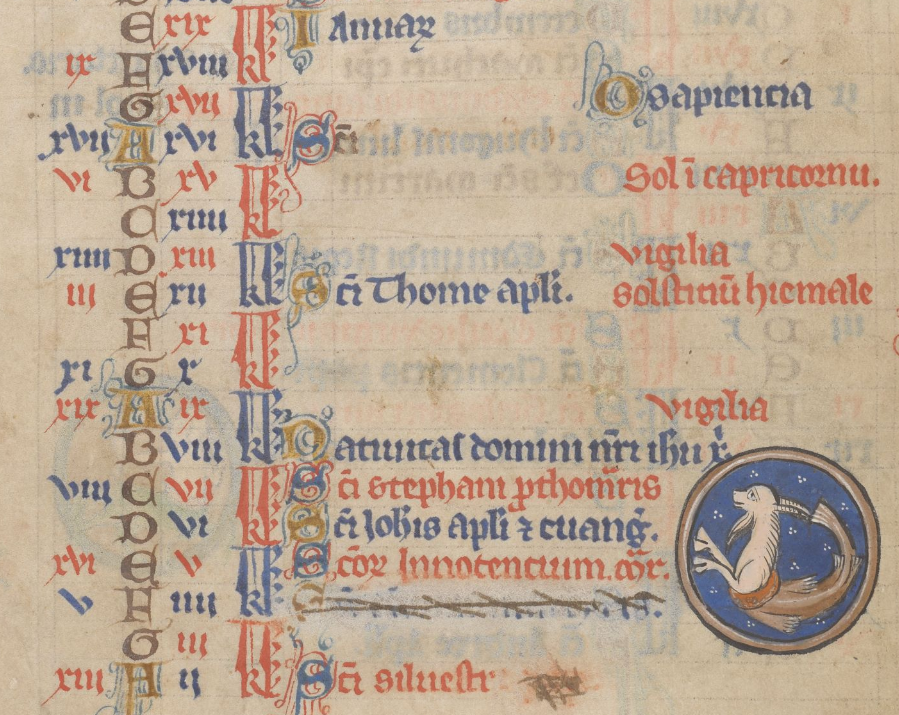 E xix kl Januar
ix F xviii kl
G xvii kl O sapiencia
xvii A xvi kl Sci
vi B xv kl Sol i capricornu.
C xiiii kl
xiiii D xiii kl vigilia
iii E xii kl Sci Thome apli. solsticiu hiemale
F xi kl
xi G x kl
xix A ix kl vigilia
B viii kl Natiuitas domini nri ihu x
viii C vii kl Sci Stephani pthomris
D vi kl Sci Johis apli ⁊ euang.
xvi E v kl Scor Innocencium. mr.
v F iiii kl
G iii kl
xiii A ii kl Sci siluestr